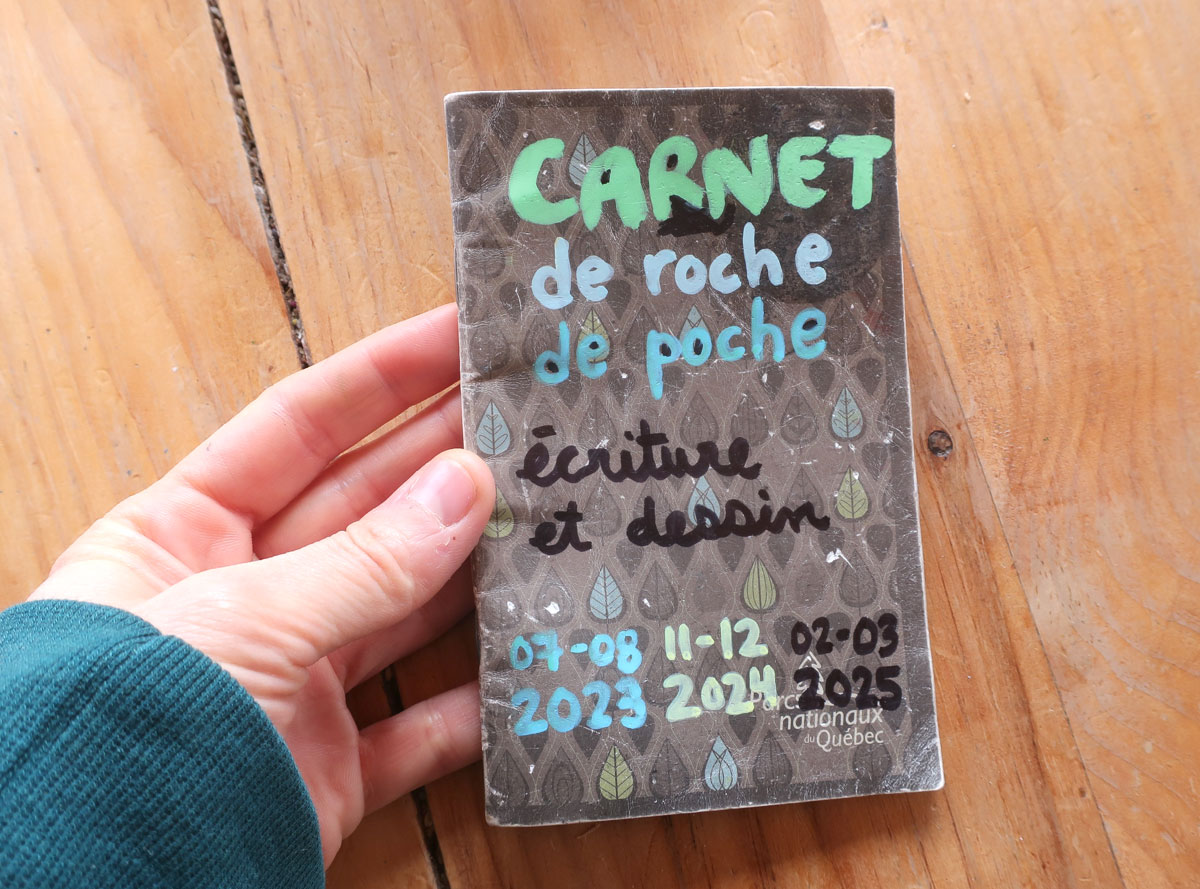 CARNET
de roche
de poche
écriture
et dessin
07-08 11-12 02-03
2023 2024 2025
Parcs
nationaux
du Québec